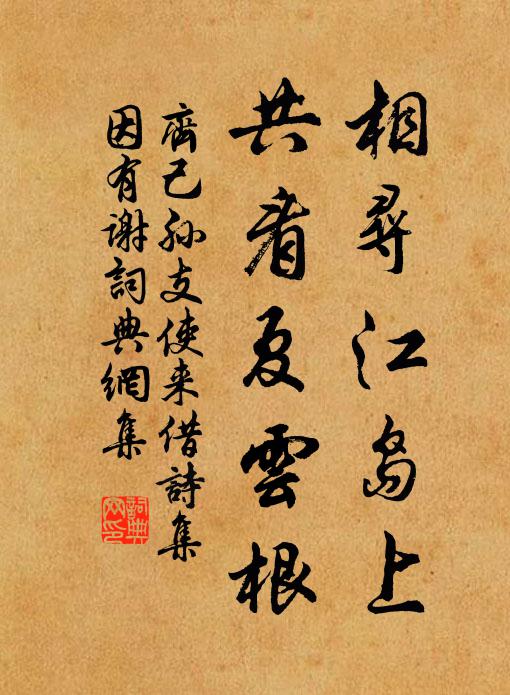 相尋江島上
共看夏雲根
齊己孫支使来借詩集
因有謝詞典網集
詞典網印